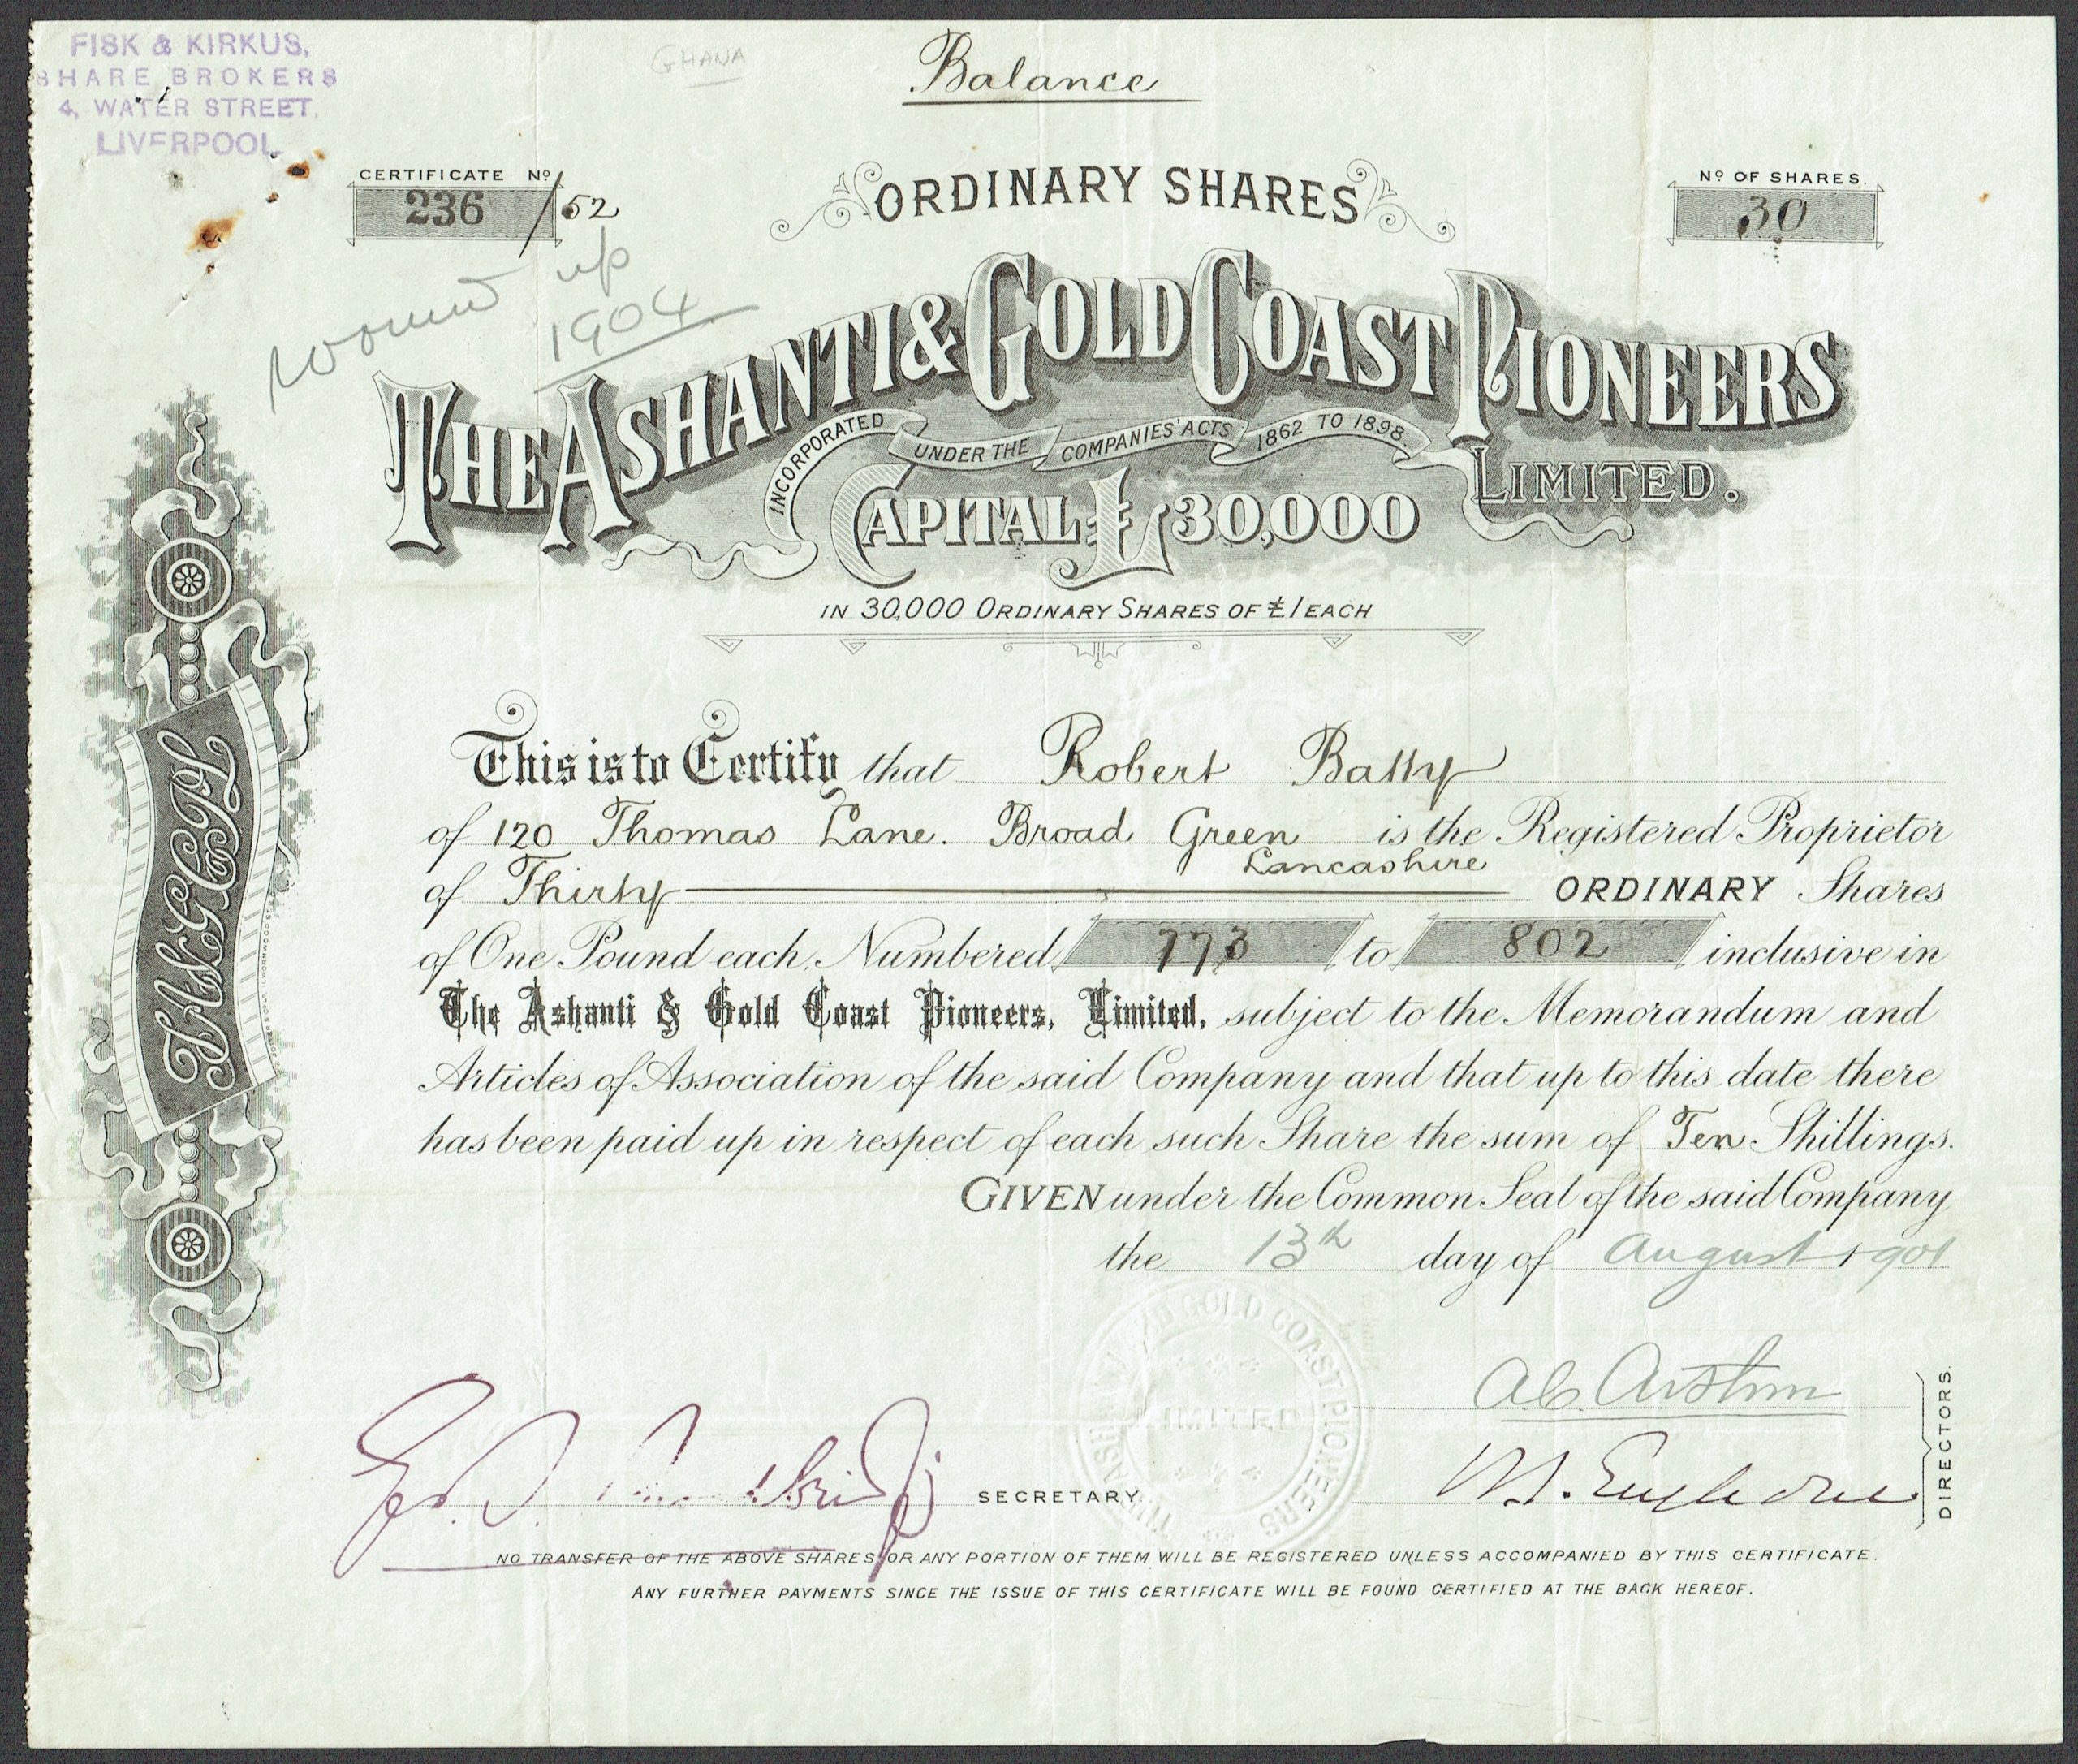 FISK & KIRKUS,
SHARE BROKERS
4, WATER STREET.
LIVERPOOL
GHANA
Balance
CERTIFICATE No
236/52
ORDINARY SHARES
No OF SHARES.
30
wound up
1904
THE ASHANTI & GOLD COAST PIONEERS
LIMITED.
INCORPORATED UNDER THE COMPANIES' ACTS 1862 TO 1898.
CAPITAL £30,000
IN 30,000 ORDINARY SHARES OF £1 EACH
T.A.&G.C.P.L.
This is to Certify that Robert Batty
of 120 Thomas Lane. Broad Green is the Registered Proprietor
Lancashire
of Thirty ORDINARY Shares
of One Pound each, Numbered 773 to 802 inclusive in
The Ashanti & Gold Coast Pioneers, Limited, subject to the Memorandum and
Articles of Association of the said Company and that up to this date there
has been paid up in respect of each such Share the sum of Ten Shillings.
GIVEN under the Common Seal of the said Company
the 13th day of August 1901
THE ASHANTI AND GOLD COAST PIONEERS
LIMITED
SECRETARY
DIRECTORS.
NO TRANSFER OF THE ABOVE SHARES OR ANY PORTION OF THEM WILL BE REGISTERED UNLESS ACCOMPANIED BY THIS CERTIFICATE.
ANY FURTHER PAYMENTS SINCE THE ISSUE OF THIS CERTIFICATE WILL BE FOUND CERTIFIED AT THE BACK HEREOF.